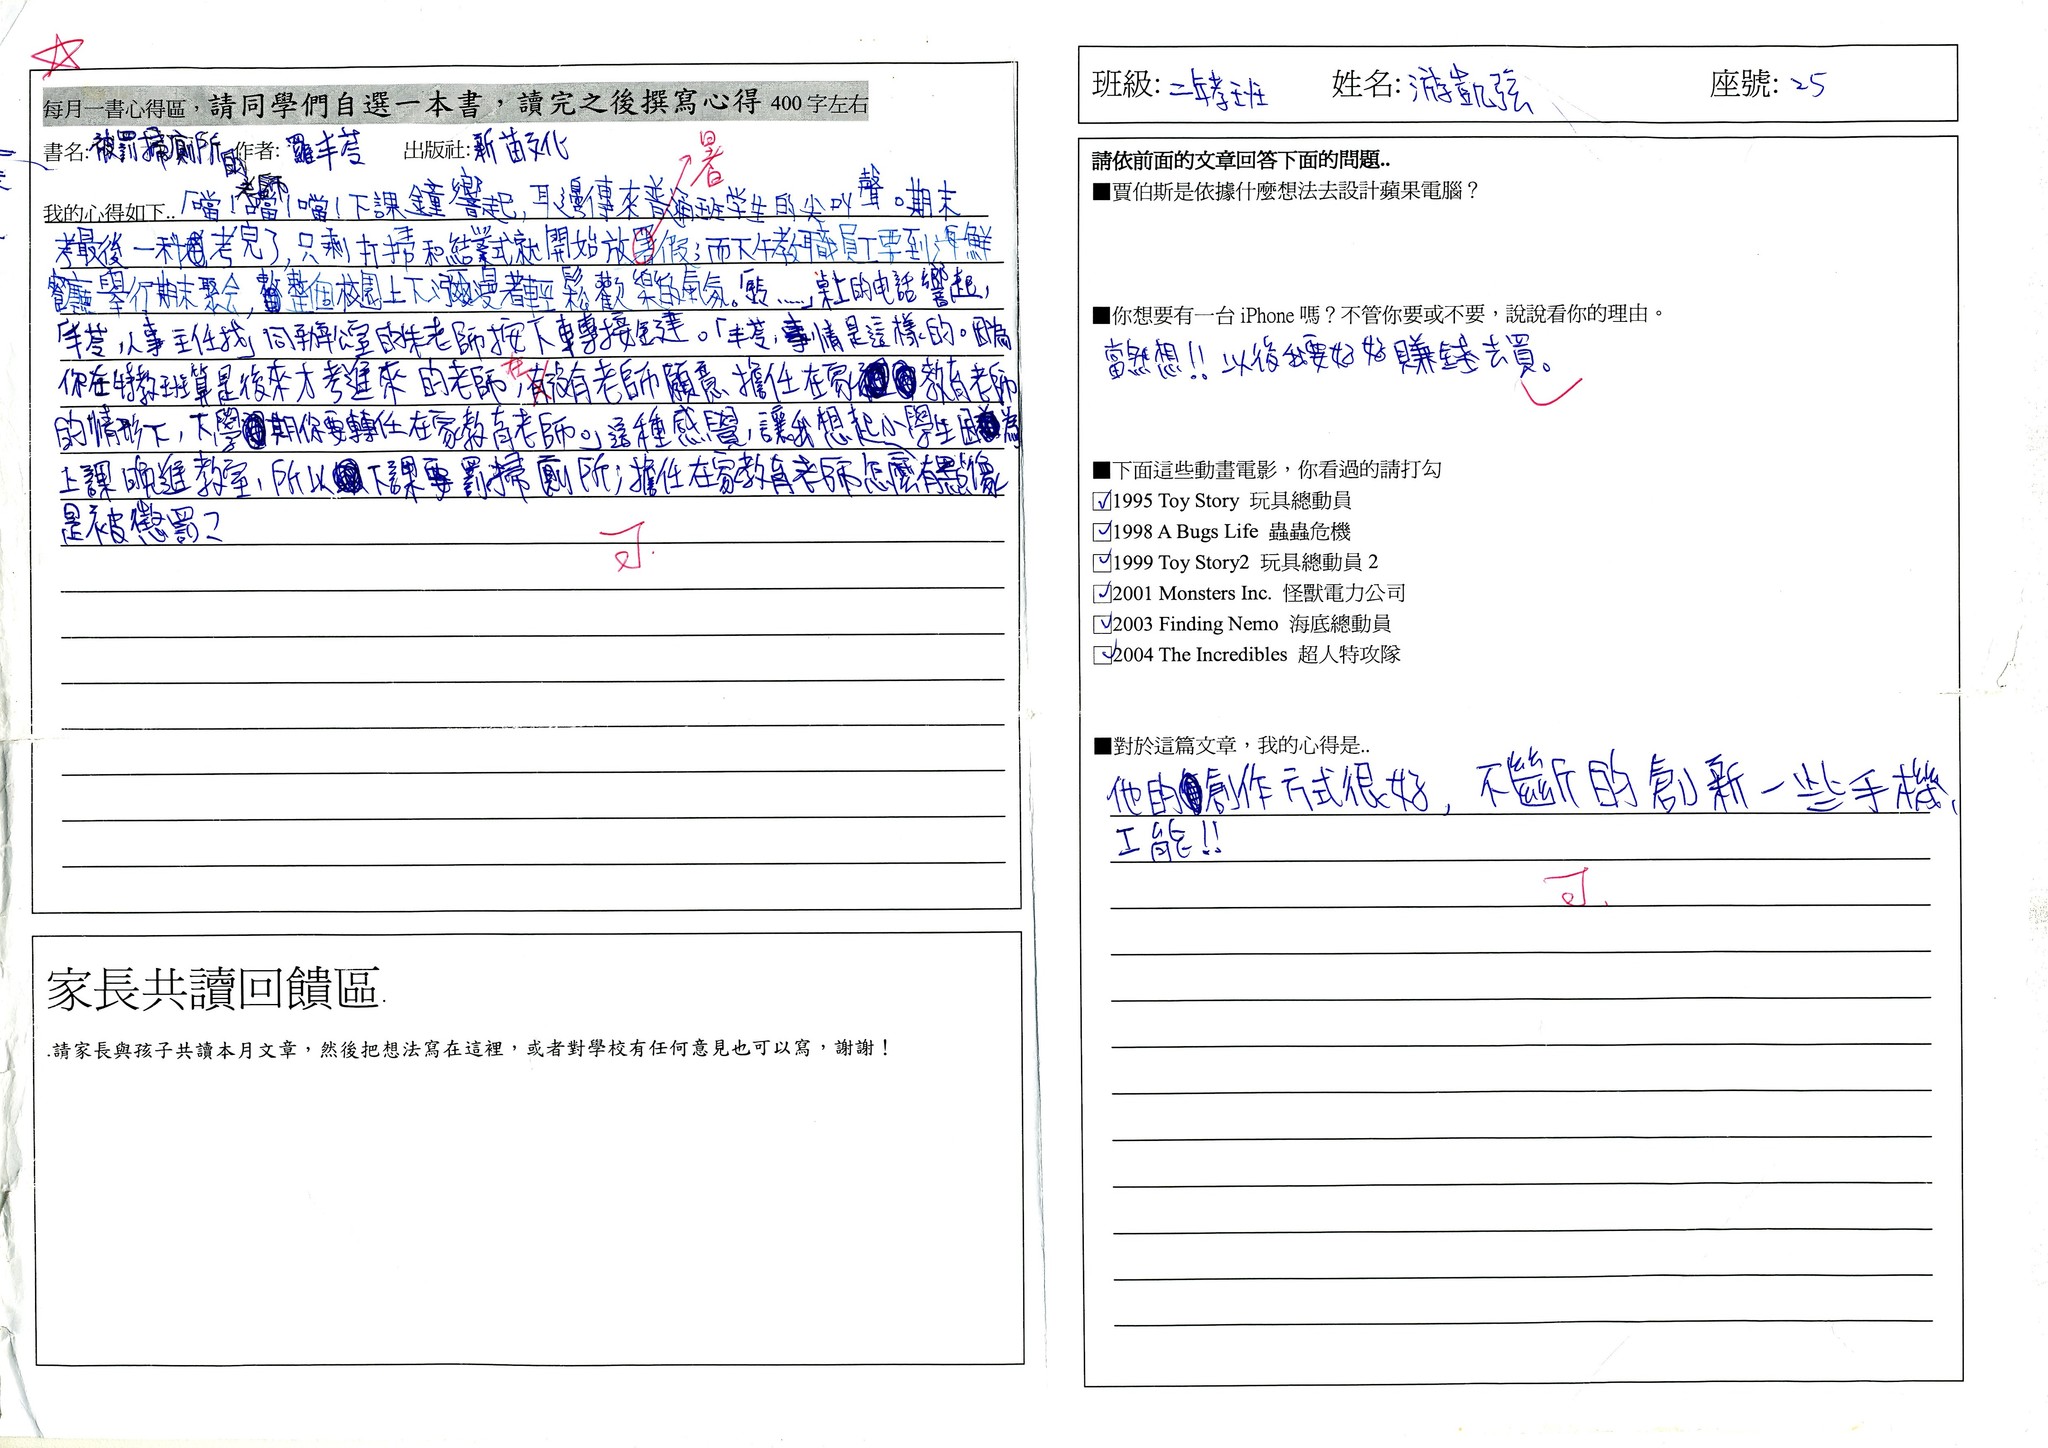 每月一書心得區，請同學們自選一本書，讀完之後撰寫心得 400 字左右
書名:被罰掃廁所的老師 作者: 羅丰苓 出版社:新苗文化
暑
我的心得如下..「噹！噹！噹！下課鐘響起，耳邊傳來普通班學生的尖叫聲。期末
考最後一科考完了，只剩打掃和結業式就開始放暑假；而下午教職員工要到海鮮
餐廳舉行期末聚會，整個校園上下瀰漫著輕鬆歡樂的氣氛。「鈴……」桌上的电話響起，
「丰苓，人事主任找」同辦公室的朱老師按下轉接鍵。「丰苓，事情是這樣的。因為
你在特教班算是後來才考進來的老師，在沒有老師願意擔任在家教育老師
的情形下，下學期你要轉任在家教育老師。」這種感覺，讓我想起小學生因為
上課晚進教室，所以下課要罰掃廁所；擔任在家教育老師怎麼有點像
是被懲罰？
可.
家長共讀回饋區.
.請家長與孩子共讀本月文章，然後把想法寫在這裡，或者對學校有任何意見也可以寫，謝謝！
班級: 二年孝班 姓名: 游凱弦 座號: 25
請依前面的文章回答下面的問題..
■賈伯斯是依據什麼想法去設計蘋果電腦？
■你想要有一台 iPhone 嗎？不管你要或不要，說說看你的理由。
當然想!! 以後我要好好賺錢去買。
■下面這些動畫電影，你看過的請打勾
☑1995 Toy Story 玩具總動員
☑1998 A Bugs Life 蟲蟲危機
☑1999 Toy Story2 玩具總動員 2
☑2001 Monsters Inc. 怪獸電力公司
☑2003 Finding Nemo 海底總動員
☑2004 The Incredibles 超人特攻隊
■對於這篇文章，我的心得是..
他的創作方式很好，不斷的創新一些手機、
工能!!
可.